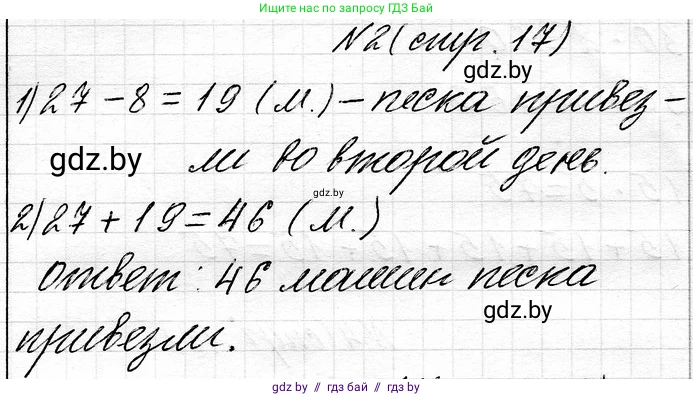 Ищите нас по запросу ГДЗ Бай
№2 (стр. 17)
gdz.by
1) 27 - 8 = 19 (м.) - песка привез-
gdz.by
ли во второй день.
gdz.by
2) 27 + 19 = 46 (м.)
ответ: 46 машин песка
gdz.by
привезли.
gdz.by // гдз бай // gdz.by